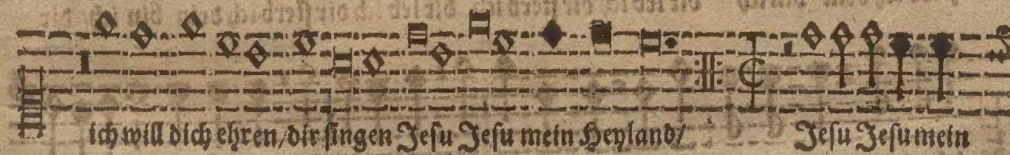 ich will dich ehren/dir singen Jesu Jesu mein Heyland/ Jesu Jesu mein